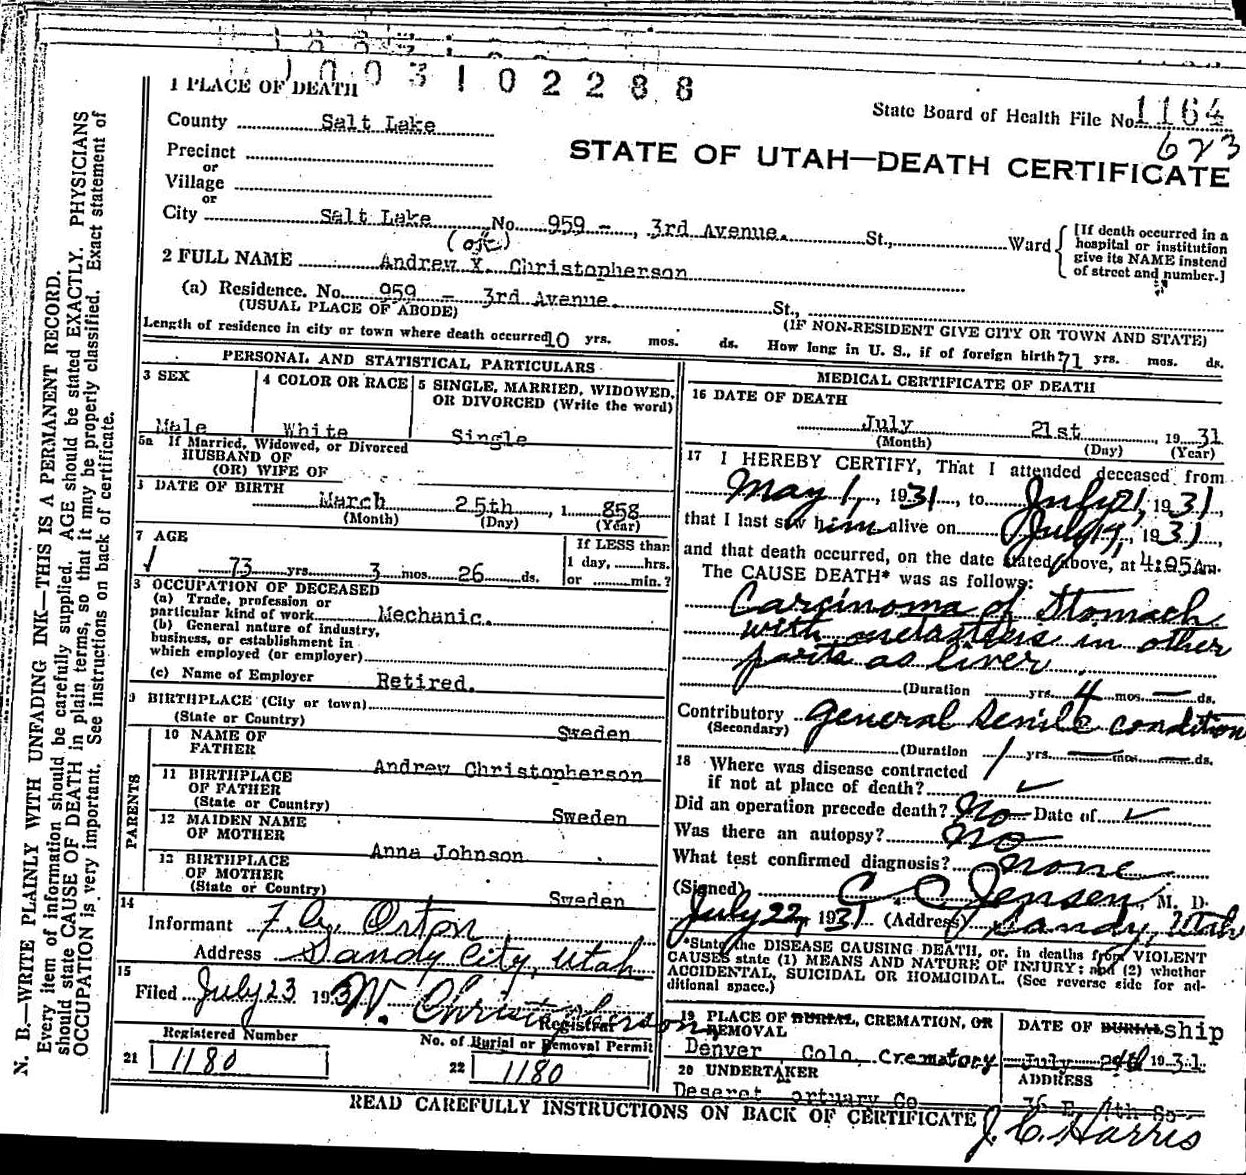 1003102288
1 PLACE OF DEATH
State Board of Health File No. 1164
623
County Salt Lake
STATE OF UTAH—DEATH CERTIFICATE
Precinct
or
Village
or
City Salt Lake No. 959 - , 3rd Avenue. St., Ward
[If death occurred in a
hospital or institution
give its NAME instead
of street and number.]
(ok)
2 FULL NAME Andrew X. Christopherson
(a) Residence. No. 959 - 3rd Avenue. St.,
(USUAL PLACE OF ABODE) (IF NON-RESIDENT GIVE CITY OR TOWN AND STATE)
Length of residence in city or town where death occurred 10 yrs. mos. ds. How long in U. S., if of foreign birth? 71 yrs. mos. ds.
PERSONAL AND STATISTICAL PARTICULARS
3 SEX
Male
4 COLOR OR RACE
White
5 SINGLE, MARRIED, WIDOWED,
OR DIVORCED (Write the word)
Single
5a If Married, Widowed, or Divorced
HUSBAND OF
(OR) WIFE OF
DATE OF BIRTH
March 25th, 1 858
(Month) (Day) (Year)
7 AGE
73 yrs. 3 mos. 26 ds.
If LESS than
1 day, hrs.
or min.?
OCCUPATION OF DECEASED
(a) Trade, profession or
particular kind of work Mechanic.
(b) General nature of industry,
business, or establishment in
which employed (or employer)
(c) Name of Employer Retired.
9 BIRTHPLACE (City or town)
(State or Country) Sweden
PARENTS
10 NAME OF
FATHER Andrew Christopherson
11 BIRTHPLACE
OF FATHER
(State or Country) Sweden
12 MAIDEN NAME
OF MOTHER Anna Johnson
13 BIRTHPLACE
OF MOTHER
(State or Country) Sweden
14
Informant F. Orton
Address Sandy City, Utah
15
Filed July 23 193 W. Christopherson
Registrar
Registered Number
21 1180
No. of Burial or Removal Permit
22 1180
MEDICAL CERTIFICATE OF DEATH
16 DATE OF DEATH
July 21st, 19 31
(Month) (Day) (Year)
17 I HEREBY CERTIFY, That I attended deceased from
May 1, 1931, to July 21, 1931
that I last saw him alive on July 19, 1931,
and that death occurred, on the date stated above, at 4:05 Am.
The CAUSE DEATH* was as follows:
Carcinoma of Stomach
with metastases in other
parts as liver
(Duration yrs. 4 mos. — ds.
Contributory general senile condition
(Secondary)
(Duration 1 yrs. — mos. — ds.
18 Where was disease contracted
if not at place of death?
Did an operation precede death? No Date of
Was there an autopsy? No
What test confirmed diagnosis? none
(Signed) C. C. Jensen, M. D.
July 22, 1931 (Address) Sandy, Utah
*State the DISEASE CAUSING DEATH, or, in deaths from VIOLENT
CAUSES state (1) MEANS AND NATURE OF INJURY; and (2) whether
ACCIDENTAL, SUICIDAL OR HOMICIDAL. (See reverse side for ad-
ditional space.)
19 PLACE OF BURIAL, CREMATION, OR
REMOVAL
Denver, Colo, Crematory
DATE OF BURIAL ship
July 24th 1931.
20 UNDERTAKER
Deseret ortuary Co
ADDRESS
36 E. 7th So
J. C. Harris
READ CAREFULLY INSTRUCTIONS ON BACK OF CERTIFICATE
N. B.—WRITE PLAINLY WITH UNFADING INK—THIS IS A PERMANENT RECORD.
Every item of information should be carefully supplied. AGE should be stated EXACTLY. PHYSICIANS
should state CAUSE OF DEATH in plain terms, so that it may be properly classified. Exact statement of
OCCUPATION is very important. See instructions on back of certificate.